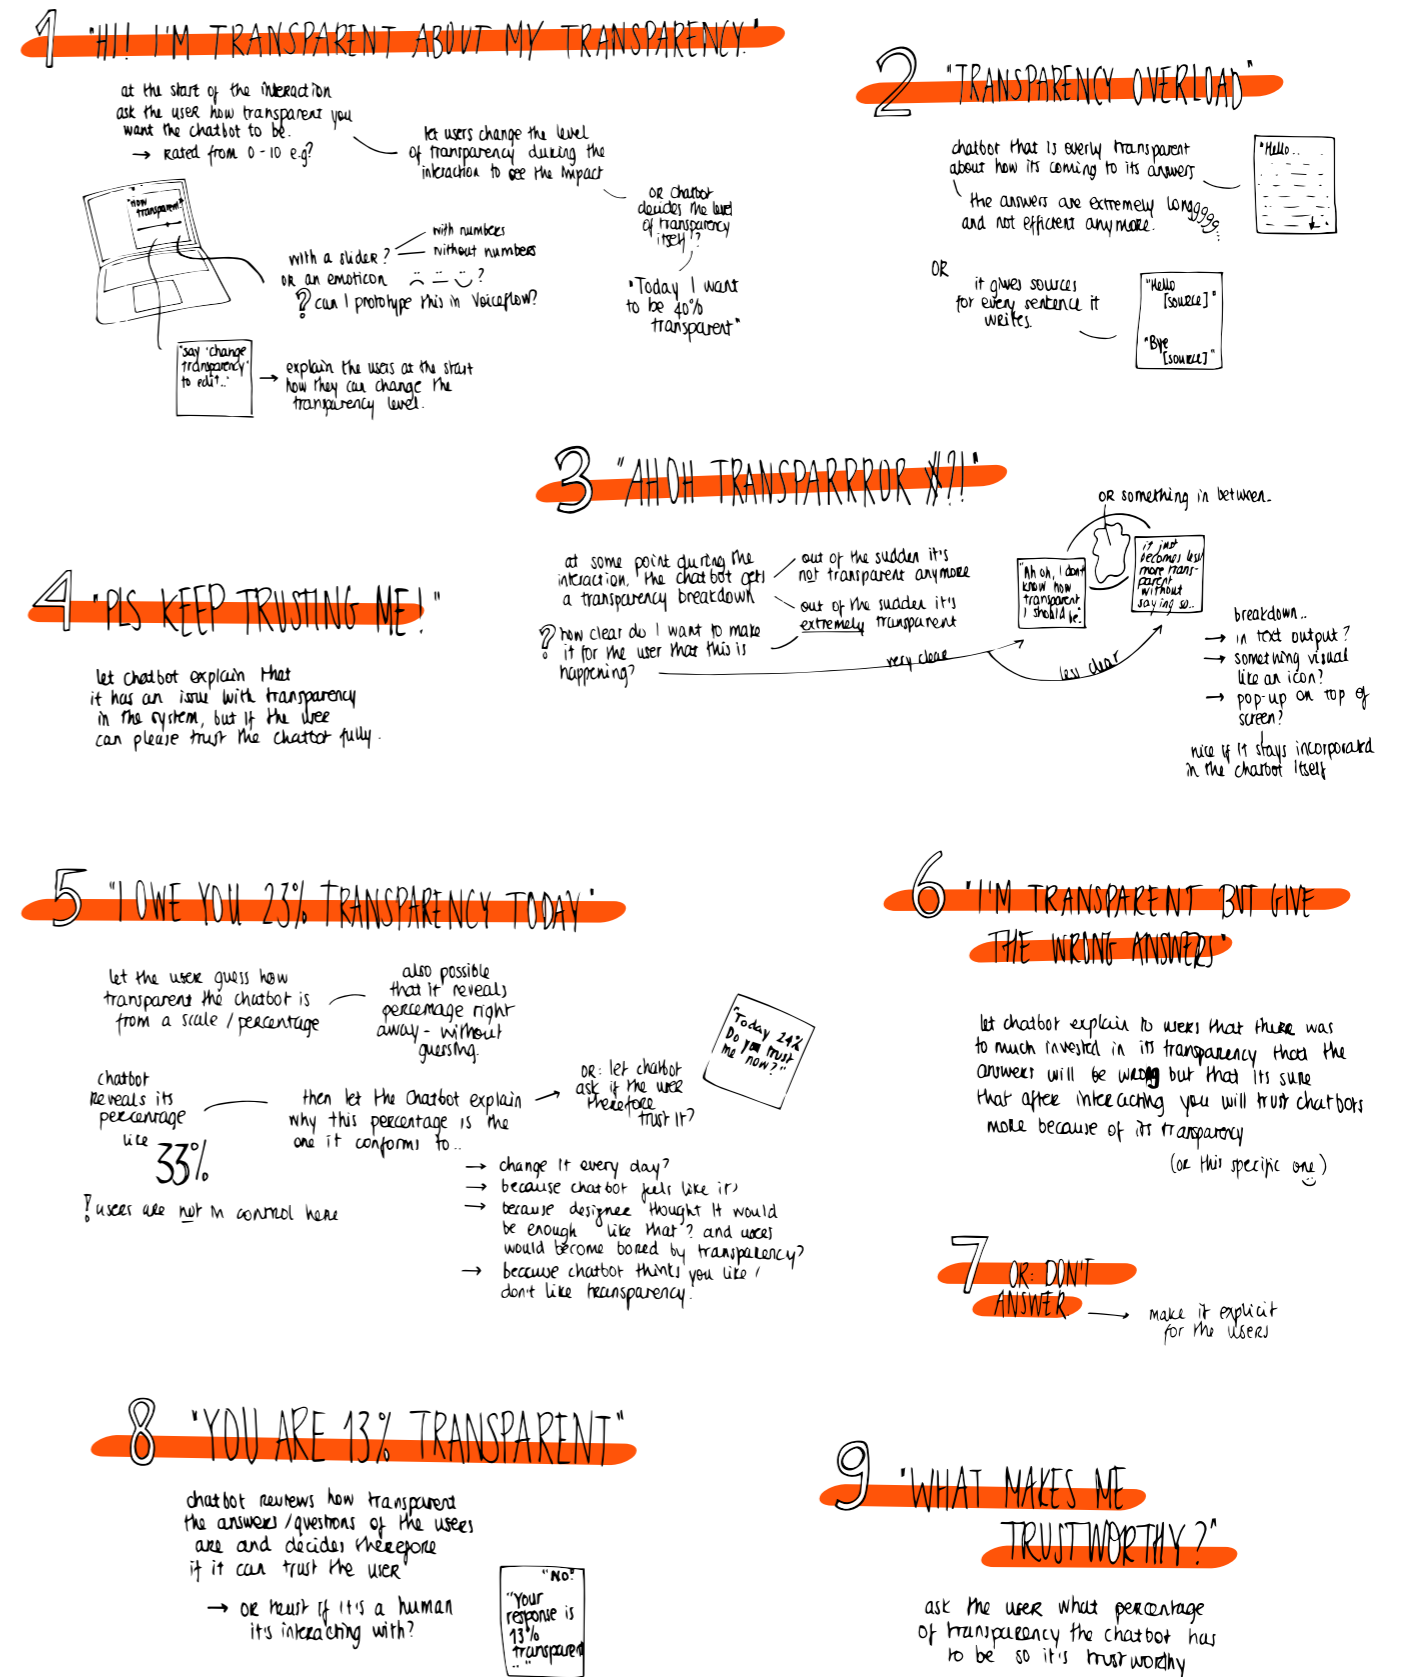 1 "HI! I'M TRANSPARENT ABOUT MY TRANSPARENCY."
at the start of the interaction
ask the user how transparent you
want the chatbot to be.
→ Rated from 0-10 e.g?
let users change the level
of transparency during the
interaction to see the impact
OR chatbot
decides the level
of transparency
itself?
"Today I want
to be 40%
transparent"
"How
transparent?"
with a slider?
with numbers
without numbers
OR an emoticon ?
? can I prototype this in Voiceflow?
"say 'change
transparency'
to edit.."
→ explain the users at the start
how they can change the
transparency level.
2 "TRANSPARENCY OVERLOAD"
chatbot that is overly transparent
about how its coming to its answers
the answers are extremely longgggg...
and not efficient anymore.
"Hello..
OR
it gives sources
for every sentence it
writes.
"Hello
[source]"
"Bye
[source]"
3 "AH OH TRANSPARRROR X?!"
at some point during the
interaction, the chatbot gets
a transparency breakdown
out of the sudden it's
not transparent anymore
out of the sudden it's
extremely transparent
? how clear do I want to make
it for the user that this is
happening?
very clear
less clear
"Ah oh, I don't
know how
transparent
I should be."
OR something in between..
it just
becomes less/
more trans-
parent
without
saying so..
breakdown..
→ in text output?
→ something visual
like an icon?
→ pop-up on top of
screen?
nice if it stays incorporated
in the chatbot itself
4 "PLS KEEP TRUSTING ME!"
let chatbot explain that
it has an issue with transparency
in the system, but if the user
can please trust the chatbot fully.
5 "I OWE YOU 23% TRANSPARENCY TODAY"
let the user guess how
transparent the chatbot is
from a scale / percentage
also possible
that it reveals
percentage right
away - without
guessing.
chatbot
reveals its
percentage
like
33%
then let the chatbot explain
why this percentage is the
one it conforms to..
→ OR: let chatbot
ask if the user
therefore
trust it?
"Today 24%
Do you trust
me now?"
! users are not in control here
→ change it every day?
→ because chatbot feels like it?
→ because designer thought it would
be enough like that? and users
would become bored by transparency?
→ because chatbot thinks you like /
don't like transparency.
6 "I'M TRANSPARENT BUT GIVE
THE WRONG ANSWERS"
let chatbot explain to users that there was
to much invested in its transparency that the
answers will be wrong but that its sure
that after interacting you will trust chatbots
more because of its transparency
(or this specific one)
7 OR: DON'T
ANSWER.
→ make it explicit
for the users
8 "YOU ARE 13% TRANSPARENT"
chatbot reviews how transparent
the answers / questions of the users
are and decides therefore
if it can trust the user
→ OR trust if it's a human
it's interacting with?
"No."
"Your
response is
13%
transparent
.."
9 "WHAT MAKES ME
TRUSTWORTHY?"
ask the user what percentage
of transparency the chatbot has
to be so it's trustworthy